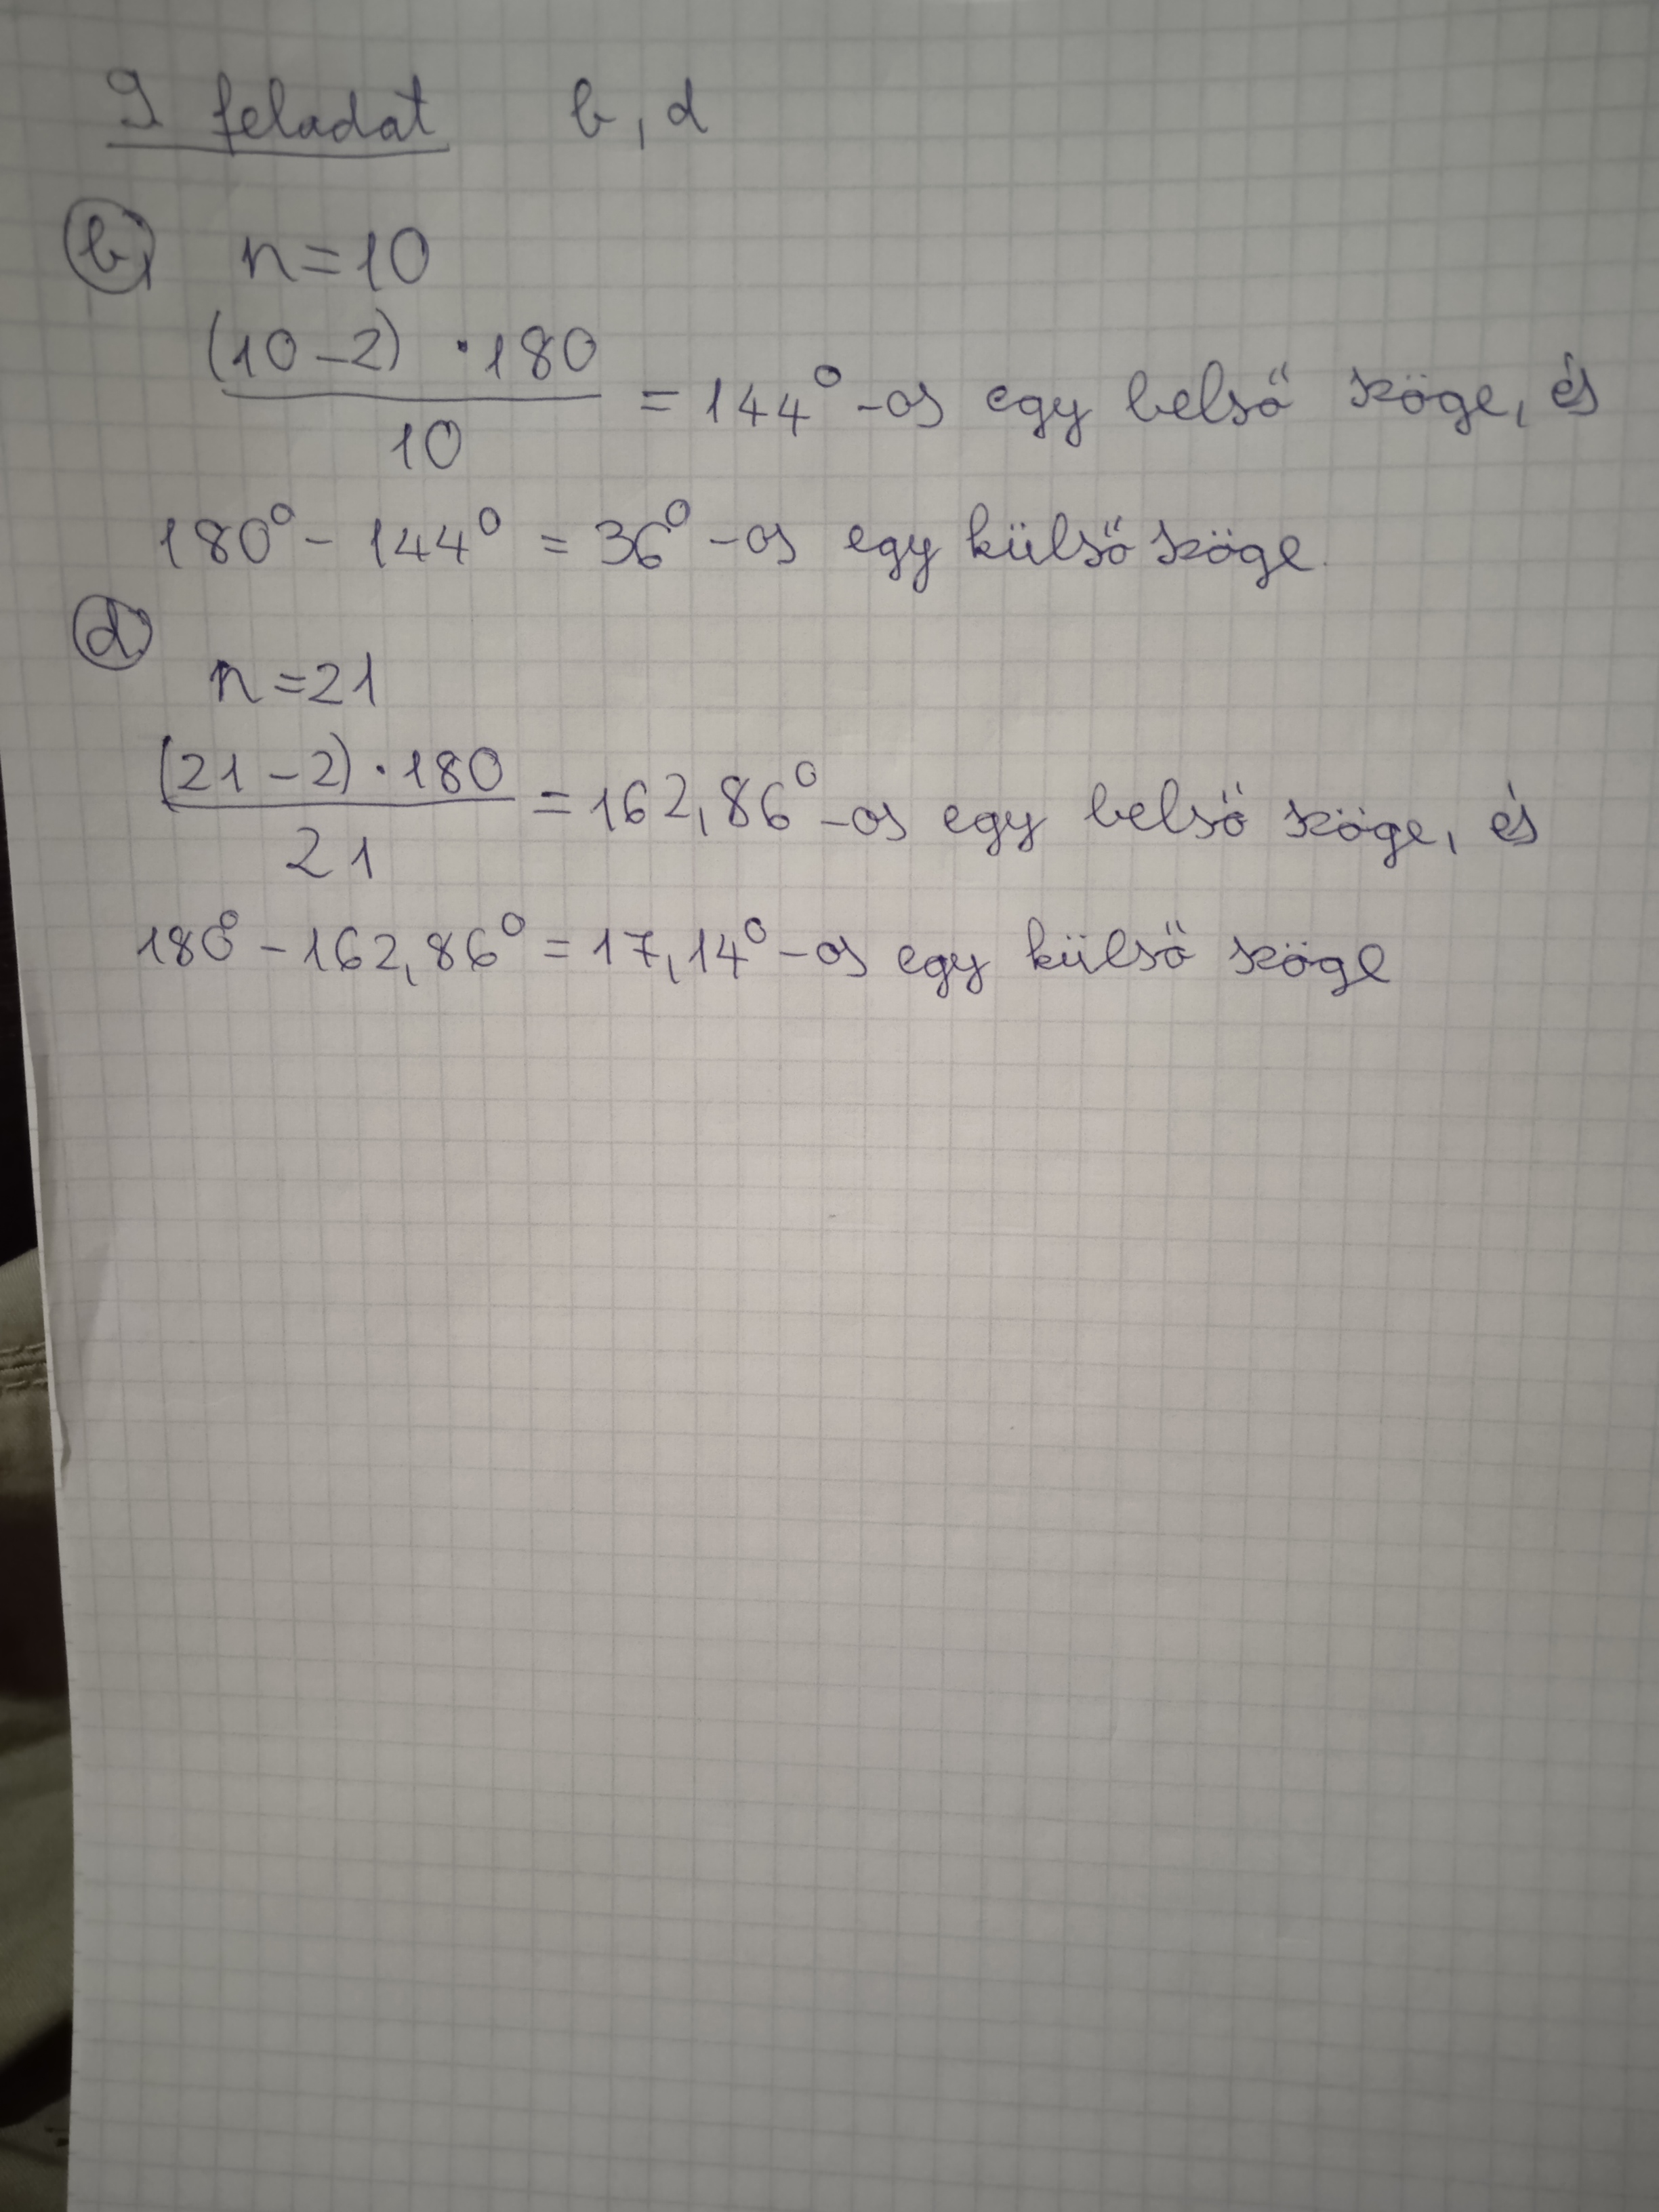 9 feladat b, d
b, n=10
(10-2) · 180
10
= 144°-os egy belső szöge, és
180° - 144° = 36°-os egy külső szöge.
d,
n=21
(21-2) · 180
21
= 162,86°-os egy belső szöge, és
180° - 162,86° = 17,14°-os egy külső szöge